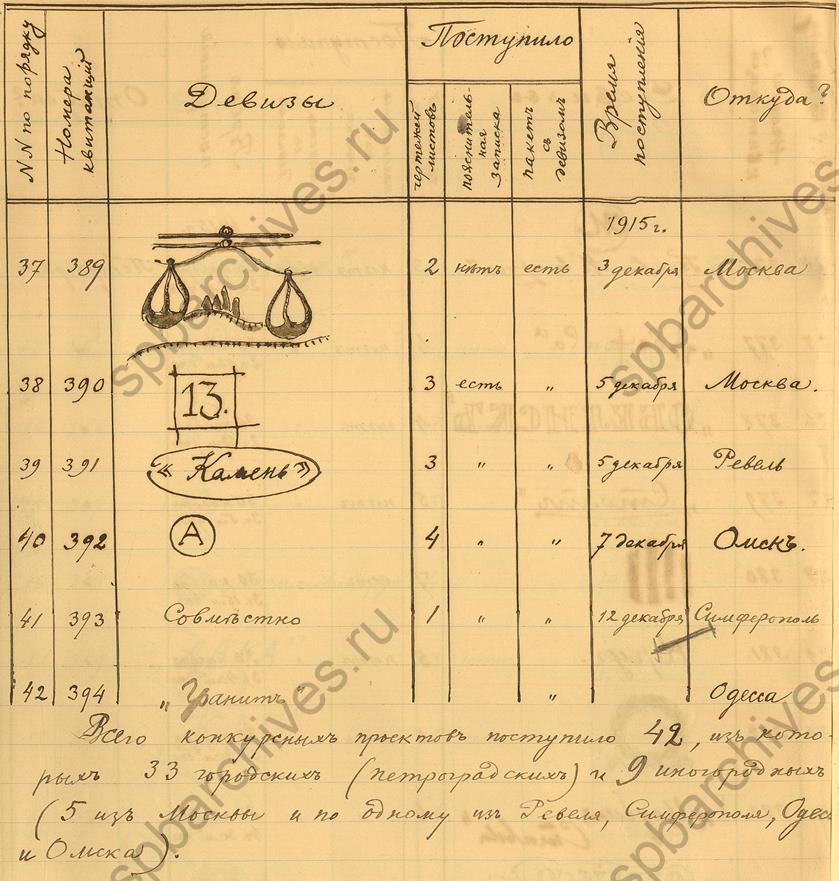 NN по порядку
Номера квитанцiй
Девизы
Поступило
чертежей листовъ
пояснитель-
ная
записка
пакетъ
съ
девизомъ
Время поступленiя
Откуда?
1915 г.
37 389 2 нѣтъ есть 3 декабря Москва
38 390 13. 3 есть „ 5 декабря Москва.
39 391 «Камень» 3 „ „ 5 декабря Ревель
40 392 А 4 „ „ 7 декабря Омскъ.
41 393 Совмѣстно 1 „ „ 12 декабря Симферополь
42 394 „Гранитъ" „ Одесса
Всего конкурсныхъ проектовъ поступило 42, изъ кото-
рыхъ 33 городскихъ (петроградскихъ) и 9 иногородныхъ
(5 изъ Москвы и по одному изъ Ревеля, Симферополя, Одес
и Омска).
spbarchives.ru
spbarchives.ru
spbarchives.ru
spbarchives.ru